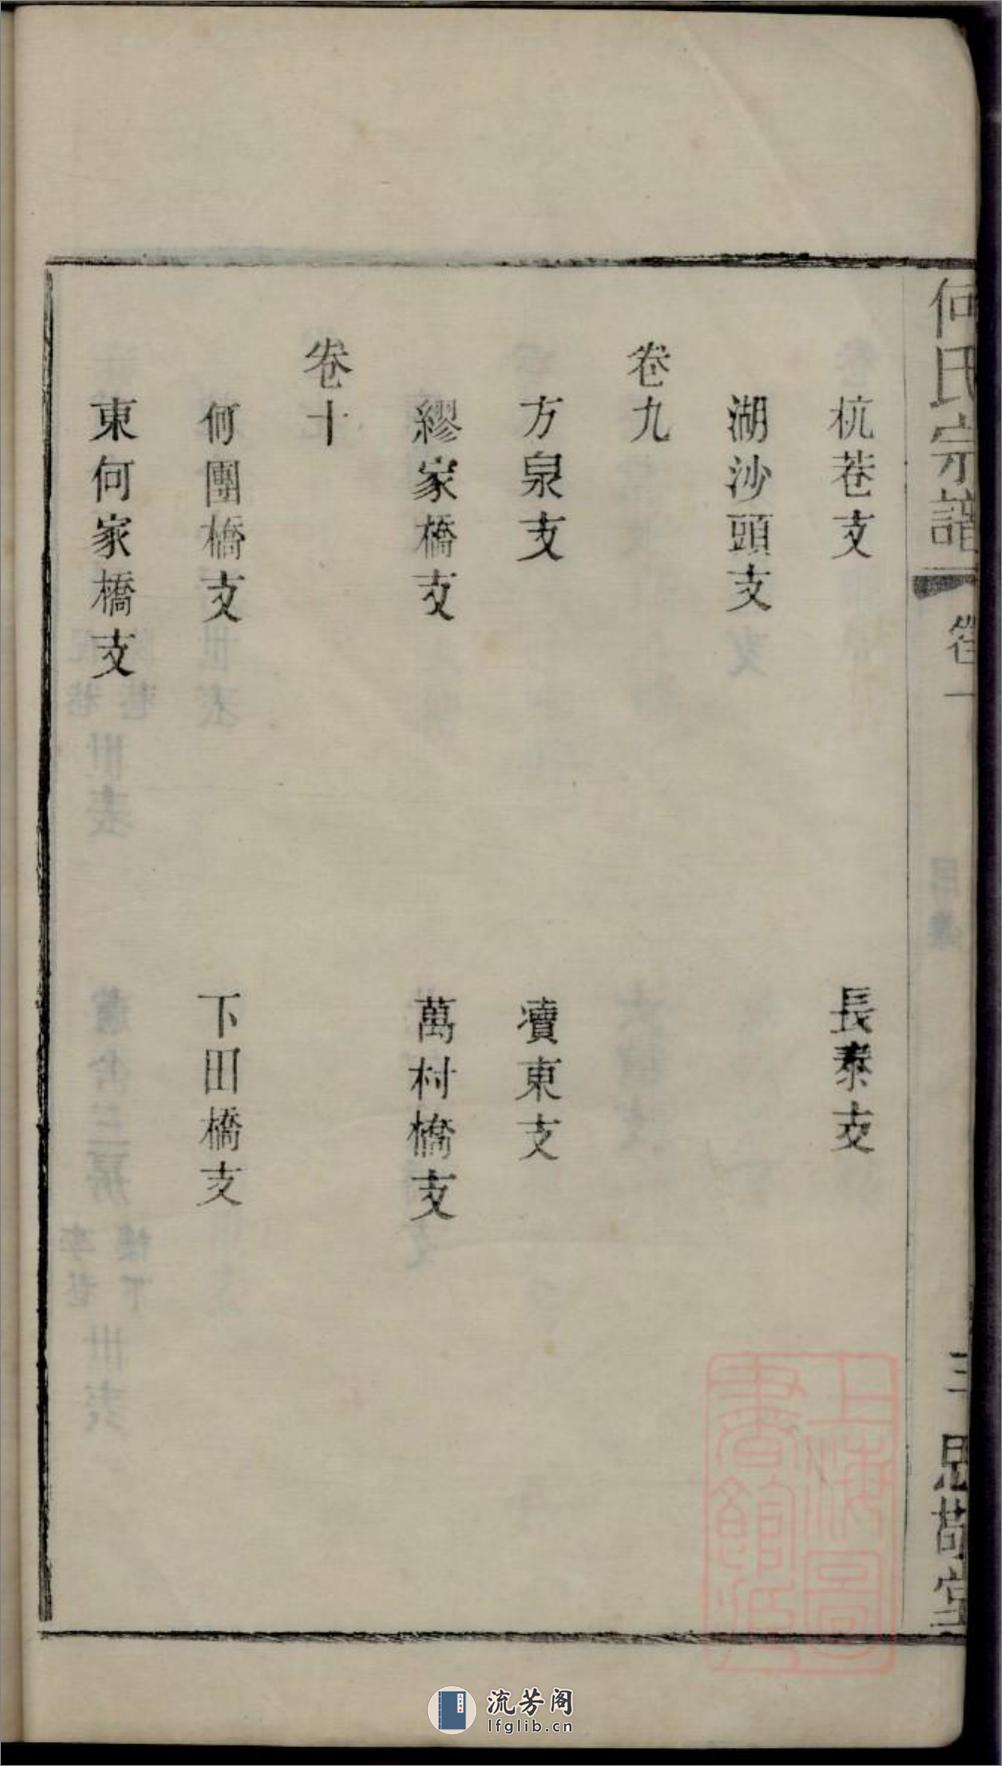 何氏宗譜
卷一
三
思敬堂
杭巷支
長泰支
湖沙頭支
卷九
方泉支
瀆東支
繆家橋支
萬村橋支
卷十
何團橋支
下田橋支
東何家橋支
上海圖
書館藏
流芳阁
lfglib.cn